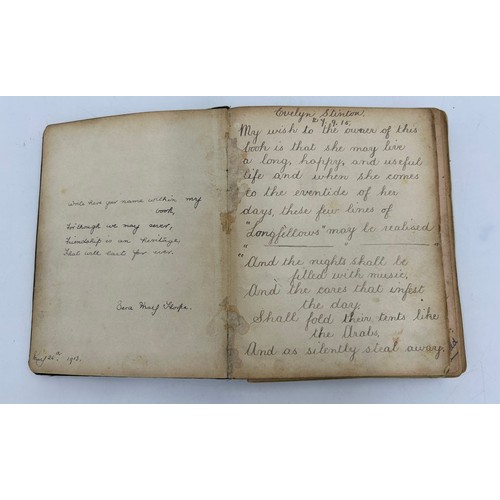 Write here your name within my
book,
For though we may sever,
Friendship is an Heritage
That will last for ever.
May
1913.
Evelyn Stenton.
27.9.15.
My wish to the owner of this
book is that she may live
a long, happy, and useful
life and when she comes
to the eventide of her
days, these few lines of
"Longfellows" may be realised
"And the nights shall be
filled with music,
And the cares that infest
the day,
Shall fold their tents like
the Arabs,
And as silently steal away.